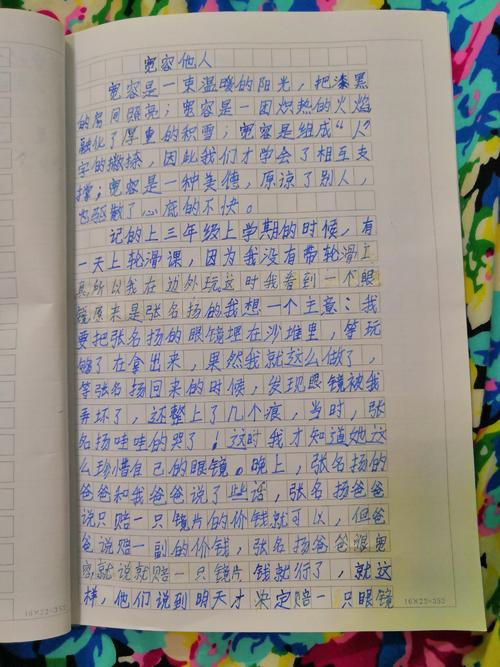 宽容他人
宽容是一束温暖的阳光，把漆黑
的房间照亮；宽容是一团炽热的火焰
融化了厚重的积雪；宽容是组成“人”
字的撇捺，因此我们才学会了相互支
撑；宽容是一种美德，原谅了别人，
也驱散了心底的不快。
记的上三年级上学期的时候，有
一天上轮滑课，因为我没有带轮滑工
具所以我在边外玩这时我看到一个眼
镜原来是张名扬的我想一个主意：我
要把张名扬的眼镜埋在沙堆里，等玩
够了在拿出来，果然我就这么做了，
等张名扬回来的时候，发现眼镜被我
弄坏了，还整上了几个痕，当时，张
名扬哇哇的哭了！这时我才知道她这
么珍惜自己的眼镜。晚上，张名扬的
爸爸和我爸爸说了些话，张名扬爸爸
说只赔一只镜片的价钱就可以，但爸
爸说赔一副的价钱，张名扬爸爸很宽
容，就说就赔一只镜片钱就行了，就这
样，他们说到明天才决定赔一只眼镜
16×22=352
16×22=352